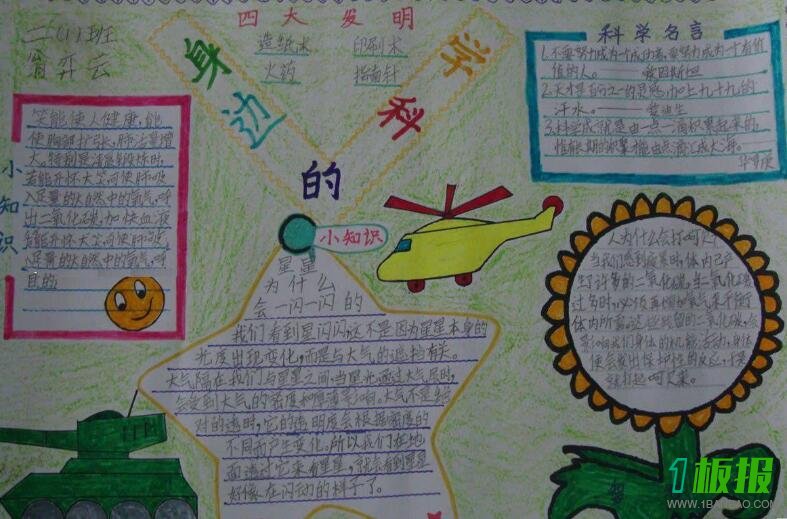 二(1)班
四大发明
造纸术 印刷术
火药 指南针
身边的科学
科学名言
1.不要努力成为一个成功者,要努力成为一个有价
值的人。——爱因斯坦
2.天才是百分之一的灵感,加上九十九的
汗水。——爱迪生
3.科学成就是由一点一滴积累起来的,
惟长期的积累才能由点滴汇成大海。
华罗庚
小知识
笑能使人健康,能
使胸部扩张,肺活量增
大。特别是清晨锻炼时,
若能开怀大笑可使肺吸
入足量的大自然中的氧气,呼
出二氧化碳,加快血液
若能开怀大笑可使肺吸
入足量的大自然中的氧气,呼
小知识
星星
为什么
会一闪一闪的
我们看到星闪闪,这不是因为星星本身的
光度出现变化,而是与大气的遮挡有关。
大气隔在我们与星星之间,当星光通过大气层时,
会受到大气的密度和厚薄影响。大气不是绝
对的透明,它的透明度会根据密度的
不同而产生变化。所以我们在地
面透过它来看星星,就会看到星星
好像在闪动的样子了。
人为什么会打呵欠?
当我们感到疲累时,体内已产
生了许多的二氧化碳。当二氧化碳
过多时,必须再增加氧气来平衡
体内所需。这些残留的二氧化碳,会
影响我们身体的机能活动,身体
便会发出保护性的反应,于是
就打起呵欠来。
1板报
WWW.1BANBAO.COM